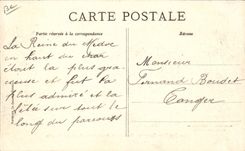 CARTE POSTALE
Partie réservée à la correspondance
Adresse
La Reine du Medoc
en haut du char
était la plus gra
cieuse et fut la
plus admiré et la
fêtée sur tout le
long du parcours
Monsieur
Fernand Boudet
Langon